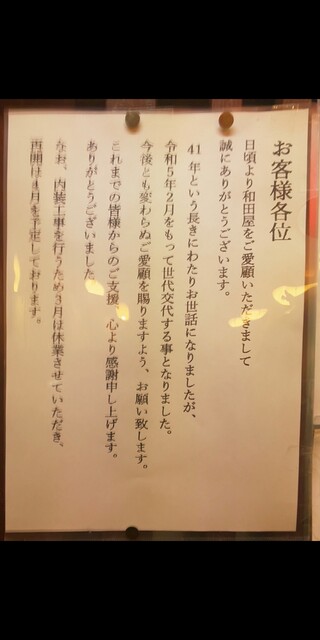 お客様各位
日頃より和田屋をご愛顧いただきまして
誠にありがとうございます。
41年という長きにわたりお世話になりましたが、
令和5年2月をもって世代交代する事となりました。
今後とも変わらぬご愛顧を賜りますよう、お願い致します。
これまでの皆様からのご支援 心より感謝申し上げます。
ありがとうございました
なお、内装工事を行うため3月は休業させていただき、
再開は4月を予定しております。